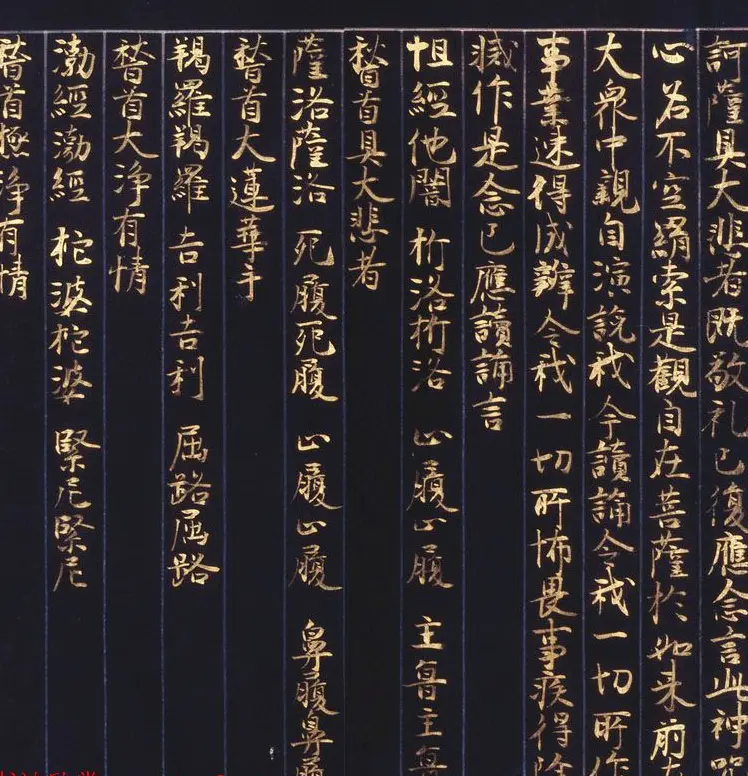 訶薩具大悲者既敬礼已復應念言此神呪
心名不空羂索是觀自在菩薩於如来前
大衆中親自演說我今讀誦令我一切所作
事業速得成辦令我一切所怖畏事疾得除
滅作是念已應讀誦言
怛經他闇 析洛析洛 止履止履 主魯主魯
稽首具大悲者
薩洛薩洛 死履死履 止履止履 鼻履鼻履
稽首大蓮華手
羯羅羯羅 吉利吉利 屈路屈路
稽首大淨有情
渤經渤經 柁婆柁婆 緊尼緊尼
稽首極淨有情